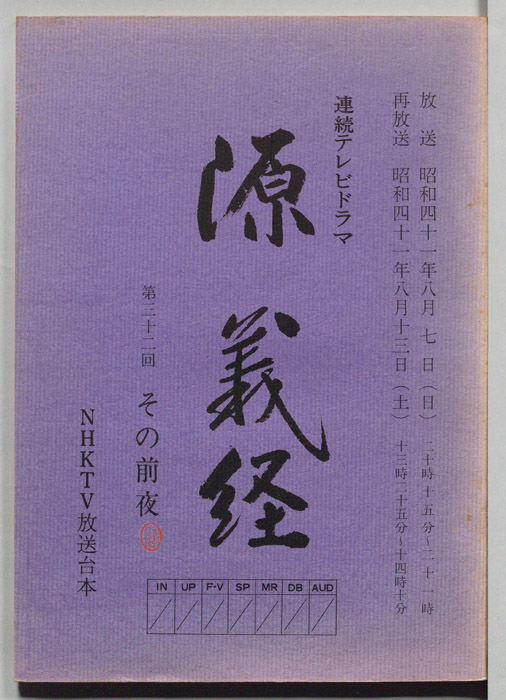 放送 昭和四十一年八月七日(日) 二十時十五分~二十一時
再放送 昭和四十一年八月十三日(土) 十三時二十五分~十四時十分
連続テレビドラマ
源義経
第三十二回 その前夜
NHKTV放送台本
IN UP F-V SP MR DB AUD